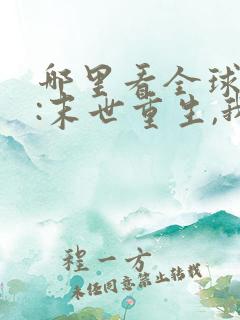 哪里看全球
:末世重生,我
程一方
未经同意禁止转载